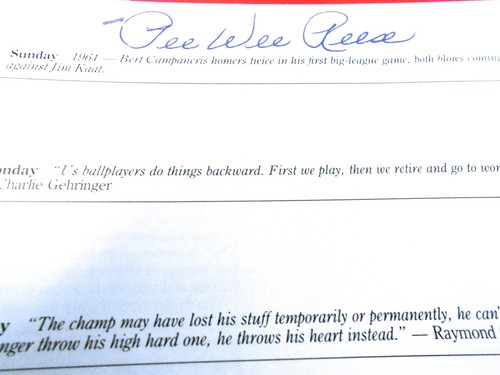 Pee Wee Reese
Sunday 1964 — Bert Campaneris homers twice in his first big-league game, both blows coming
against Jim Kaat.
onday "Us ballplayers do things backward. First we play, then we retire and go to wor
Charlie Gehringer
y "The champ may have lost his stuff temporarily or permanently, he can'
nger throw his high hard one, he throws his heart instead." — Raymond